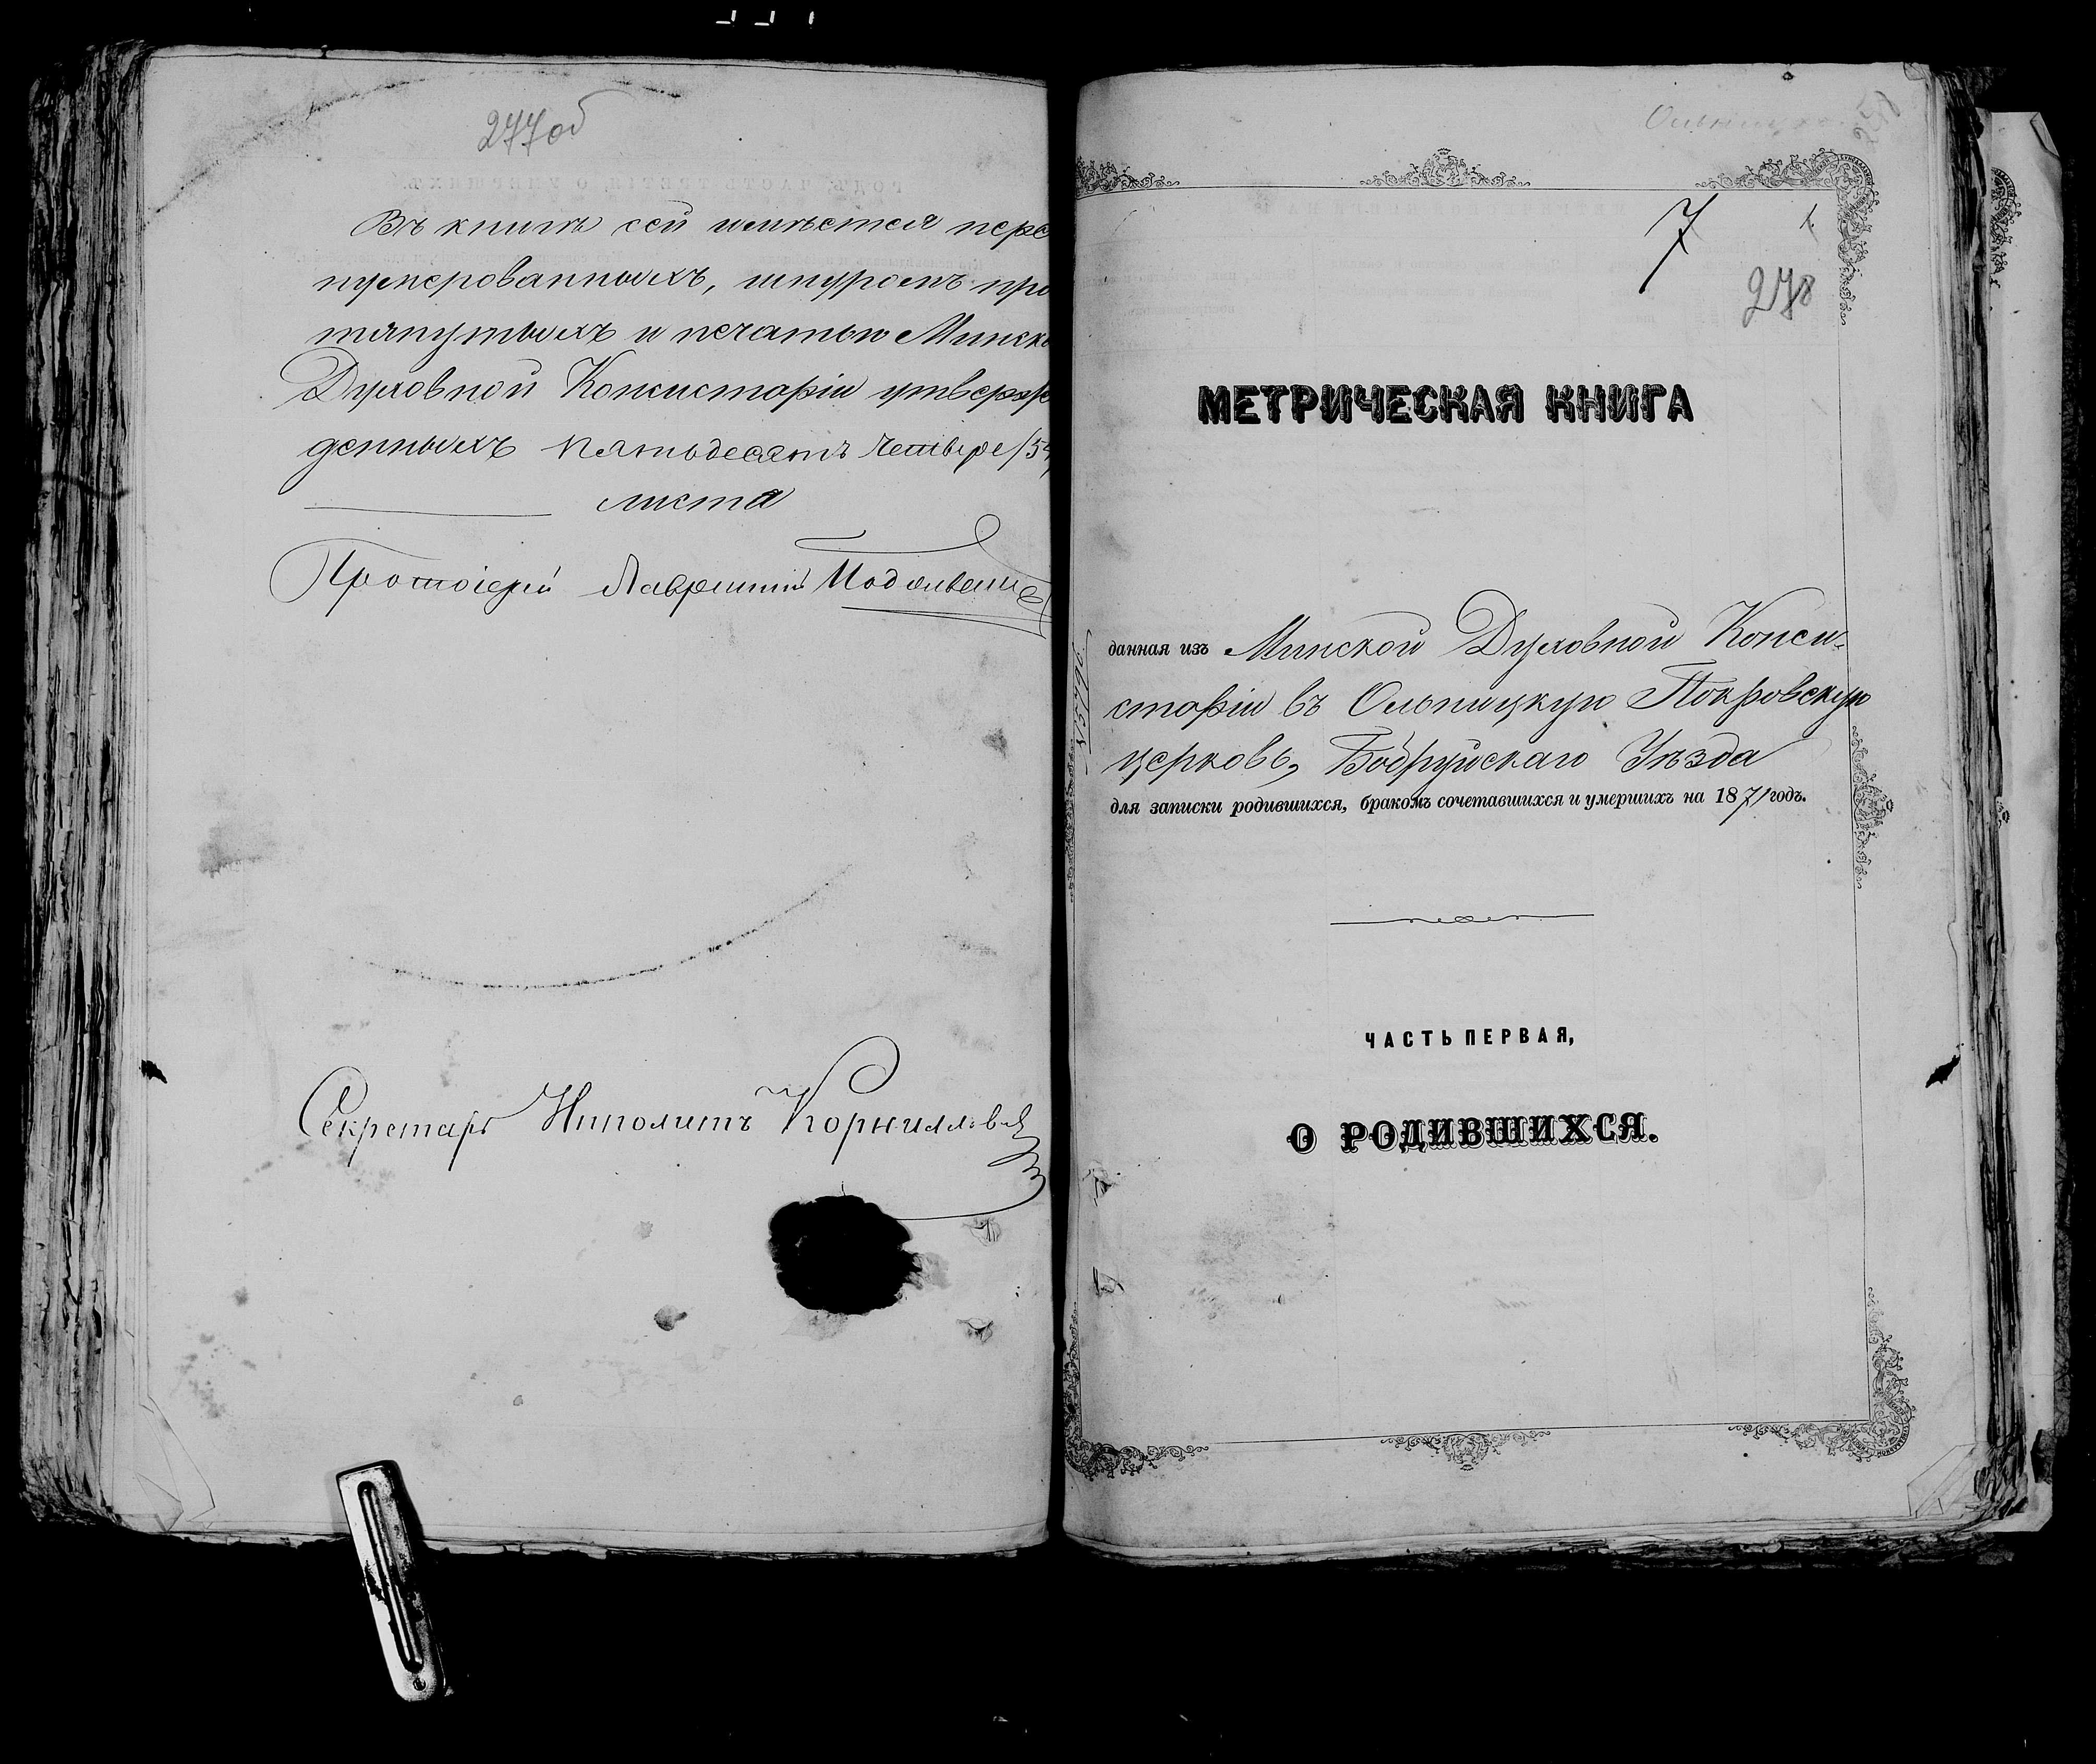 277 об
Въ книгѣ сей имѣется пере
нумерованныхъ, шнуромъ про
тянутыхъ и печатью Минско
Духовной Консисторіи утверж
денныхъ пятьдесятъ четыре /54
листа
Протоіерей Лаврентій
Секретарь Ипполитъ
7
1.
278
МЕТРИЧЕСКАЯ КНИГА
данная изъ Минской Духовной Конси-
сторіи въ Ольницкую Покровскую
церковь, Бобруйскаго Уѣзда
для записки родившихся, бракомъ сочетавшихся и умершихъ на 1871 годъ.
ЧАСТЬ ПЕРВАЯ,
О РОДИВШИХСЯ.